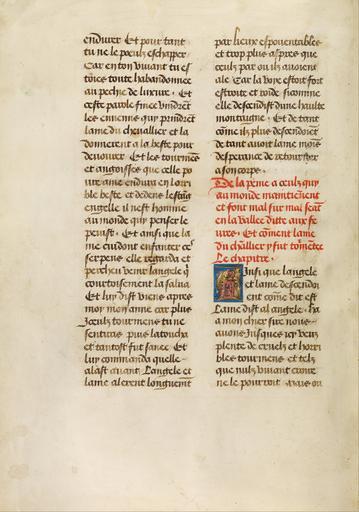 endurer Et pour tant
tu ne le peulz eschapper
Car en ton viuant tu es
toies toute habandonnee
au peche de luxure. Et
ceste parole finee vindrent
les ennemis qui prindrent
lame du cheuallier et la
donnerent a la beste pour
deuourer Et les tourmens
et angoisses que celle po
ure ame endura en lorri
ble beste et dedens lestang
engelle il nest homme
au monde qui penser le
peuist. Et ainsi que la
me cuidoit enfanter ces
serpens elle regarda et
percheu venir langele qui
courtoisement la salua
Et luy dist viens apres
moy mon amie car plus
Jceulz tourmens tu ne
sentiras puis latoucha
et tantost fut sanee Et
luy commanda quelle
alast auant Langele et
lame alerent longuement
par lieux espouentables
et trop plus aspres que
ceulz par ou ilz auoient
ale Car la voie estoit fort
estroite et roide sicomme
elle descendist dune haulte
montaigne. Et de tant
come ilz plus descendoient
de tant auoit lame mois
desperance de retourner
a son corps.
De la peine a ceulz quy
au monde maintiennent
et font mal sur mal seant
en la vallee ditte aux fe
ures. Et coment lame
du chlier y fut tourmetee
Le chapitre.
Ainsi que langele
et lame descendo
ient come dit est
Lame dist al angele. ha
a mon chier sire nous
auons Jusques icy veu
plente de cruelz et horri
bles tourmens et telz
que nulz viuant croire
ne le pourroit